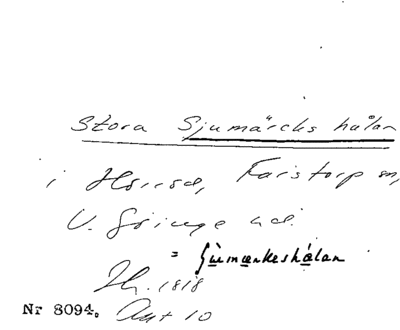 Stora Sjumärcks hålan
i Hörröd, Färistorp sn,
V. Göinge hd.
= ʃùmærkeshå̀lan
Hh. 1818
Nr 8094. Akt 10